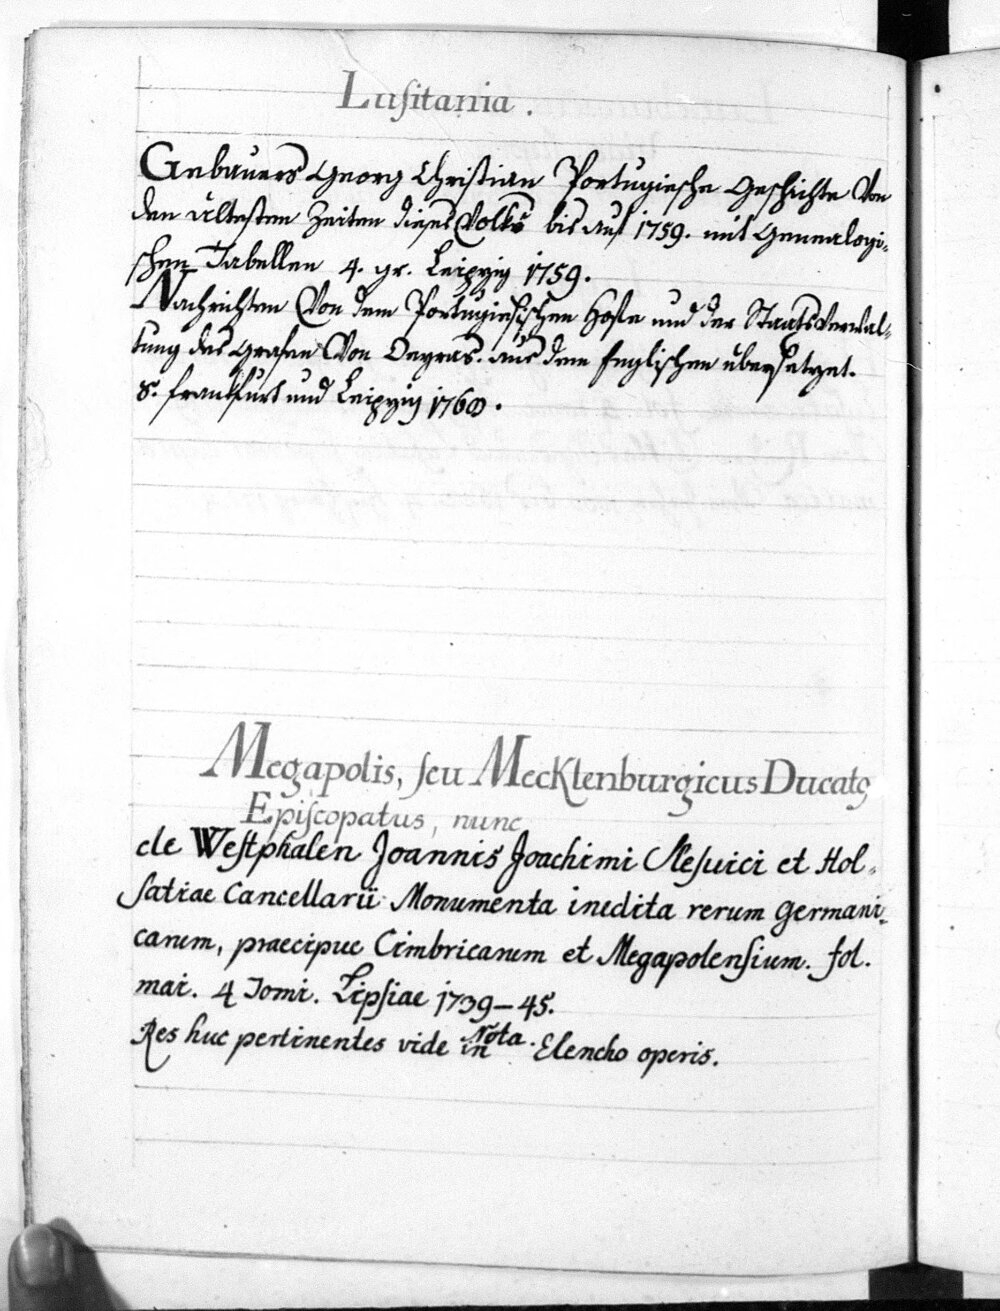 Lusitania.
Gebauers Georg Christian Portugiesche Geschichte Von
den ältesten Zeiten dieses Volks bis auf 1759. mit Genealogi-
schen Tabellen 4. gr. Leipzig 1759.
Nachrichten Von dem Portugiesischen Hofe und der Staats Verwal-
tung des Grafen Von Oeyras. aus dem Englischen übersetzet.
8. Frankfurt und Leipzig 1760.
Megapolis, seu Mecklenburgicus Ducatꝰ
Episcopatus, nunc
de Westphalen Joannis Joachimi Slesuici et Hol-
satiae Cancellarii Monumenta inedita rerum Germani-
carum, praecipue Cimbricarum et Megapolensium. fol.
mai. 4 Tomi. Lipsiae 1739-45.
Res huc pertinentes vide in Nota. Elencho operis.